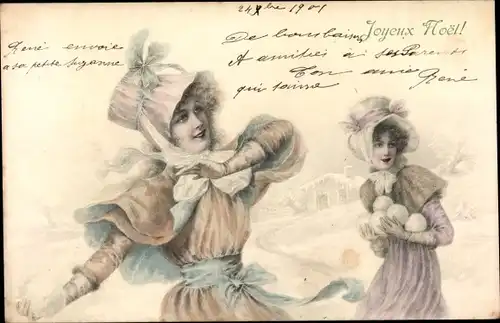 24 Xbre 1901
Joyeux Noël!
René envoie
a sa petite Suzanne
De bons baisers
A amitiés à ses Parents
Ton amie René
qui t'aime